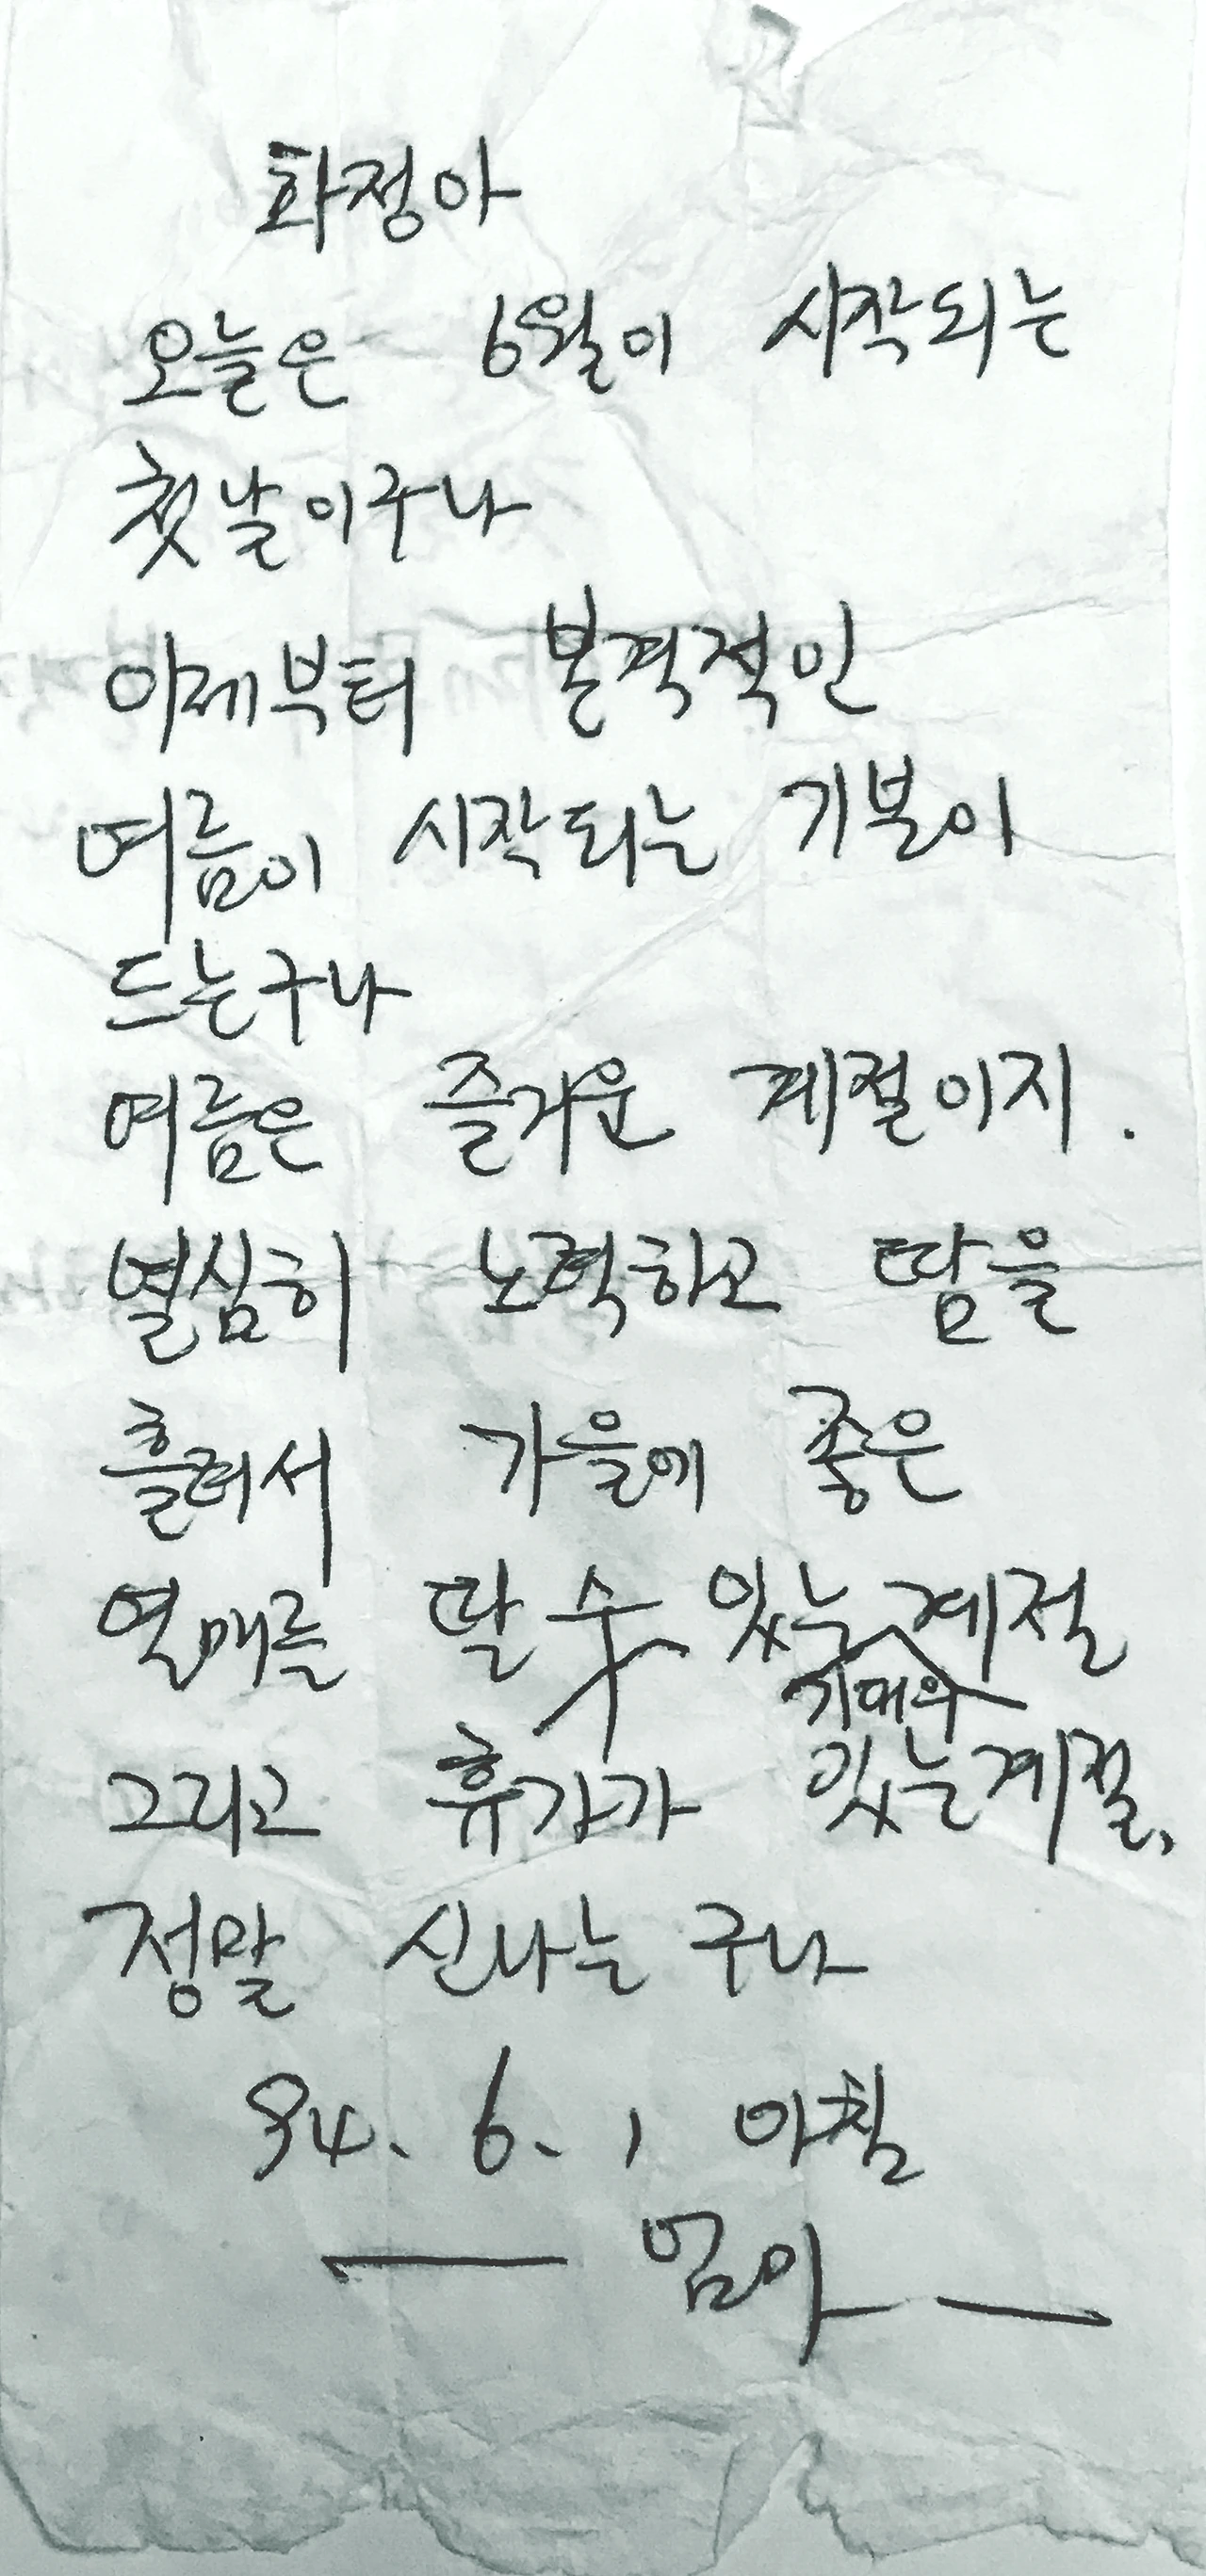 화정아
오늘은 6월이 시작되는
첫날이구나
이제부터 본격적인
여름이 시작되는 기분이
드는구나
여름은 즐거운 계절이지.
열심히 노력하고 땀을
흘려서 가을에 좋은
열매를 딸 수 있는 계절
기대의
그리고 휴가가 있는계절,
정말 신나는구나
94. 6. 1 아침
엄마